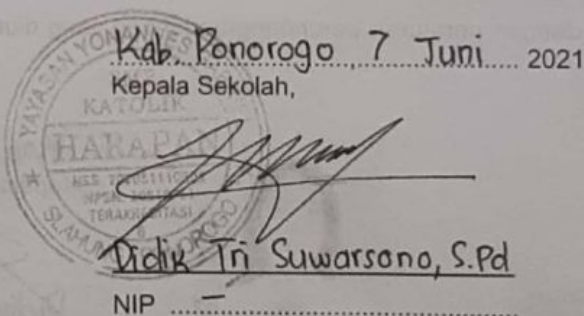 Kab. Ponorogo, 7 Juni 2021
Kepala Sekolah,
YAYASAN YOHANNES
KATOLIK
HARAPAN
TERAKREDITASI
SLAHUNG PONOROGO
Didik Tri Suwarsono, S.Pd
NIP –